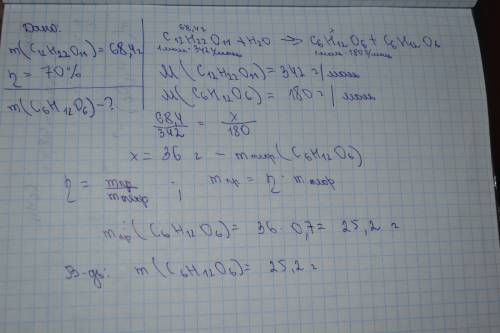 Дано:
m(C₁₂H₂₂O₁₁) = 68,4 г
η = 70%
m(C₆H₁₂O₆) - ?
68,4 г x
C₁₂H₂₂O₁₁ + H₂O → C₆H₁₂O₆ + C₆H₁₂O₆
1моль·342г/моль 1моль·180г/моль
M(C₁₂H₂₂O₁₁) = 342 г/моль
M(C₆H₁₂O₆) = 180 г/моль
68,4/342 = x/180
x = 36 г - m теор (C₆H₁₂O₆)
η = m пр/m теор ; m пр = η · m теор
m пр (C₆H₁₂O₆) = 36 · 0,7 = 25,2 г
В-дь: m (C₆H₁₂O₆) = 25,2 г